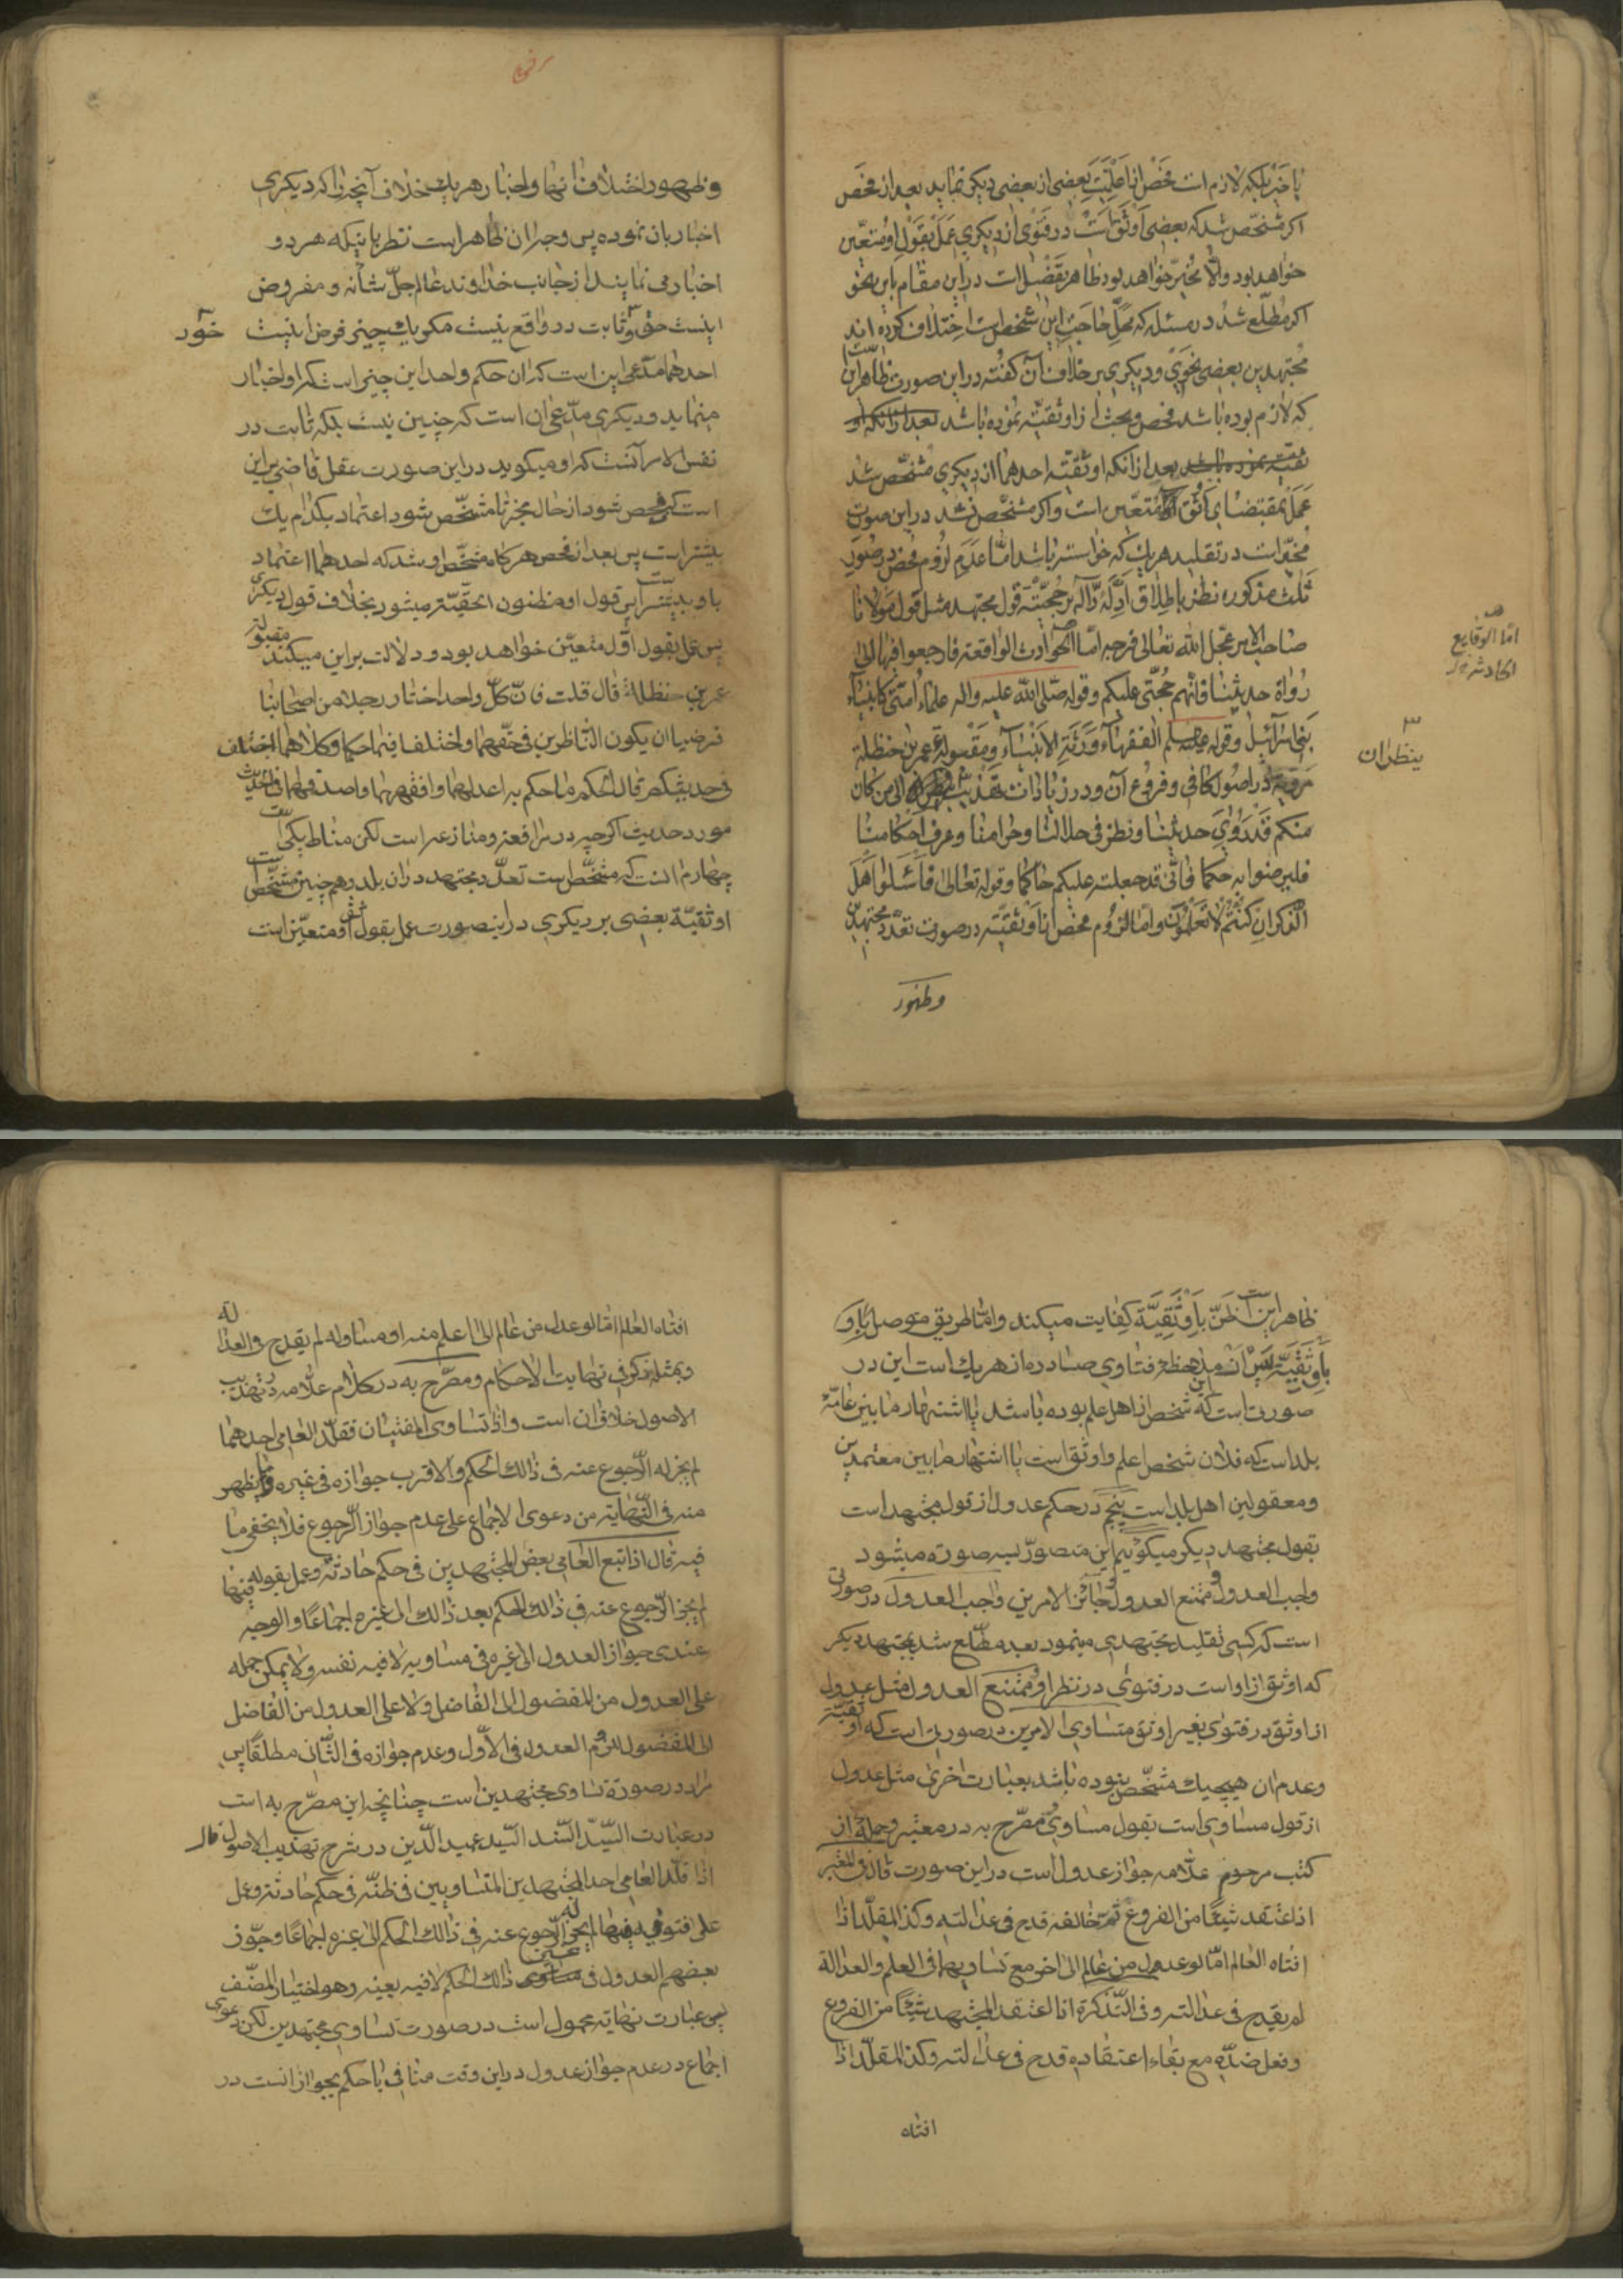 با خیر بلکه لازم است فحص از افضلیت بعضی از بعضی دیگر نماید بعد از فحص
اگر مشخص شد که بعضی اوثق است در فتوی از دیگری عمل بقول او متعین
خواهد بود والا مخیر خواهد بود ظاهر تفصیل است در این مقام باین نحو
اگر مطلع شد در مسئله که محل حاجت این شخص است اختلاف کرده اند
مجتهدین بعضی نحوی و دیگری بر خلاف آن گفته در این صورت ظاهر این است
که لازم بوده باشد فحص و بحث از اوثقیته نموده باشد بعد از آنکه او
ثقیته نموده باشد بعد از انکه اوثقیته احدهما از دیگری مشخص شد
عمل بمقتضای اوثق متعین است و اگر مشخص نشد در این صورت
مخیر است در تقلید هر یک که خواسته باشد اما عدم لزوم فحص در صور
ثلث مذکوره نظر باطلاق ادله داله بر حجیته قول مجتهد مثل قول مولانا
صاحب الامر عجل الله تعالی فرجه اما الحوادث الواقعة فارجعوا فیها الی
رواة حدیثنا فانهم حجتی علیکم وقوله صلی الله علیه واله علماء امتی کانبیاء
بنی اسرائیل وقوله الفقهاء ورثة الانبیاء ومقبولة عمر بن حنظلة
مرویه در اصول کافی و فروع آن و در زیادات تهذیب الی من کان
منکم قد روی حدیثنا ونظر فی حلالنا وحرامنا وعرف احکامنا
فلیرضوا به حکما فانی قد جعلته علیکم حاکما وقوله تعالی فاسئلوا اهل
الذکر ان کنتم لا تعلمون واما لزوم فحص از اوثقیته در صورت تعدد مجتهدین
وظهور
اما الوقایع
الحادثه
ینظران
وظهور اختلاف انها واخبار هر یک خلاف آنچه را که دیگری
اخبار بان نموده پس وجه ان ظاهر است نظر باینکه هر دو
اخبار می نمایند از جانب خداوند عالم جل شانه و مفروض
اینست حق و ثابت در واقع نیست مگر یک چیز فرض اینست
احدهما مدعی این است که ان حکم واحد این چیز است که او اخبار
مینماید و دیگری مدعی ان است که چنین نیست بلکه ثابت در
نفس الامر آنست که او میگوید در این صورت عقل قاضی بر این
است که فحص شود از حال مخبر تا مشخص شود اعتماد بکدام یک
بیشتر است پس بعد از فحص هر گاه مشخص او شد که احدهما اعتماد
باو بیشتر است پس قول او مظنون الحقیّة میشود بخلاف قول دیگری
پس عمل بقول اول متعین خواهد بود و دلالت بر این میکند مقبوله
عمر بن حنظلة قال قلت فان کل واحد اختار رجلا من اصحابنا
فرضیا ان یکون الناظرین فی حقهما واختلفا فیما حکما وکلاهما اختلف
فی حدیثکم قال الحکم ما حکم به اعدلهما وافقههما واصدقهما فی الحدیث
مورد حدیث اگر چه در مرافعه و منازعه است لکن مناط یکی است
چهارم انست که مشخص است تعدد مجتهد در ان بلد و هم چنین مشخص است
اوثقیة بعضی بر دیگری در این صورت عمل بقول اوثق متعین است
ظاهر این است ظن باوثقیّة کفایت میکند واما طریق موصل باو
باوثقیة پس ان ملاحظه فتاوی صادره از هر یک است این در
صورتی است که این شخص از اهل علم بوده باشد یا اشتهار ما بین عامه
بلد است که فلان شخص اعلم و اوثق است یا اشتهار ما بین معتمدین
ومعقولین اهل بلد است پنجم در حکم عدول از قول مجتهد است
بقول مجتهد دیگر میگوئیم این متصور بسه صورت میشود
واجب العدول و ممتنع العدول و جائز الامرین واجب العدول در صورتی
است که کسی تقلید مجتهدی مینمود بعد مطلع شد بمجتهد دیگر
که اوثق از او است در فتوی در نظر او و ممتنع العدول مثل عدول
از اوثق در فتوی بغیر اوثق متساوی الامرین در صورتی است که اوثقیته
وعدم ان هیچیک مشخص نبوده باشد بعبارت اخری مثل عدول
از قول مساوی است بقول مساوی مصرح به در معتبر و جمله از
کتب مرحوم علامه جواز عدول است در این صورت قال فی المعتبر
اذا اعتقد شیئا من الفروع ثم خالفه قدح فی عدالته وکذا المقلد اذا
افتاه العالم اما لو عدول من عالم الی اخر مع تساویهما فی العلم والعدالة
لم یقدح فی عدالته وفی التذکرة اذا اعتقد المجتهد شیئا من الفروع
وفعل ضده مع بقاء اعتقاده قدح فی عدالته وکذا المقلد اذا
افتاه
افتاه العالم اما لو عدل من عالم الی اعلم منه او مساو له لم یقدح فی العدالة
وبمثله ذکر فی نهایت الاحکام ومصرح به در کلام علامه در تهذیب
الاصول خلاف ان است واذا تساوی المفتیان فقلد العامی احدهما
لم یجز له الرجوع عنه فی ذالک الحکم والاقرب جوازه فی غیره ویظهر
منه فی النهایة من دعوی الاجماع علی عدم جواز الرجوع فلا یخفی ما
فیه قال اذا تبع العامی بعض المجتهدین فی حکم حادثة وعمل بقوله فیها
لم یجز الرجوع عنه فی ذالک الحکم بعد ذالک الی غیره اجماعا والوجه
عندی جواز العدول الی غیره فی مساویه لا فیه نفسه ولا یمکن حمله
علی العدول من المفضول الی الفاضل ولا علی العدول من الفاضل
الی المفضول للزوم العدول فی الاول وعدم جوازه فی الثانی مطلقا پس
مراد در صورة تساوی مجتهدین است چنانچه این مصرح به است
در عبارت السید السند السید عمید الدین در شرح تهذیب الاصول قال
اذا قلد العامی احد المجتهدین المتساویین فی ظنه فی حکم حادثة وعمل
علی فتویه فیها لم یجز له الرجوع عنه فی ذالک الحکم الی غیره اجماعا وجوز
بعضهم العدول فی غیر ذالک الحکم لا فیه بعینه وهو اختیار المصنف
پس عبارت نهایة محمول است در صورت تساوی مجتهدین لکن دعوی
اجماع در عدم جواز عدول در این وقت منافی با حکم بجواز انست در